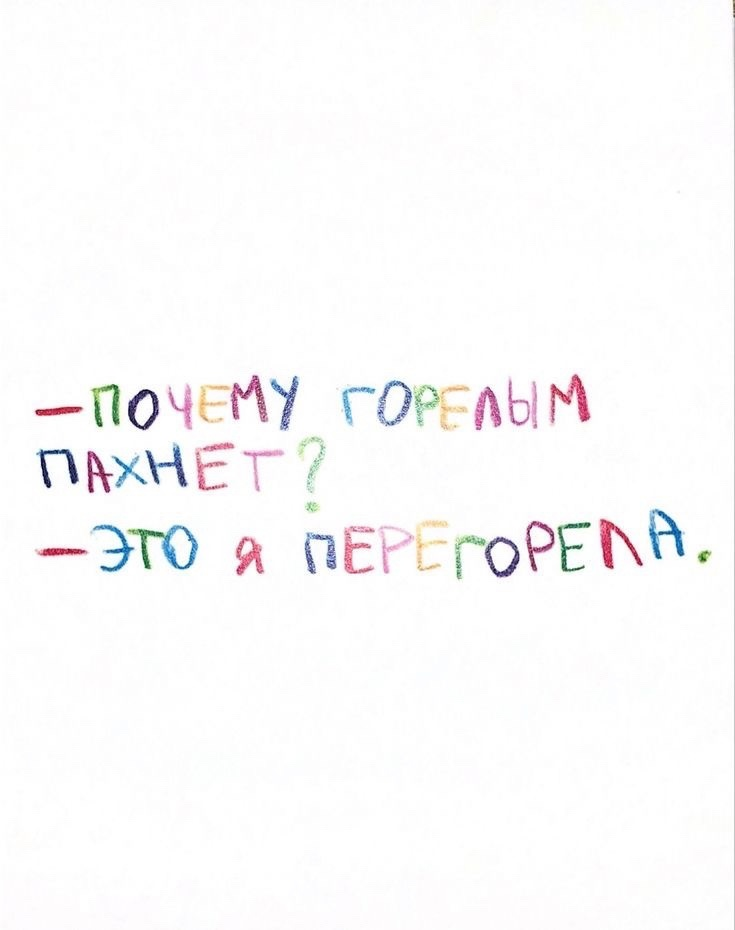 —ПОЧЕМУ ГОРЕЛЫМ
ПАХНЕТ?
—ЭТО Я ПЕРЕГОРЕЛА.